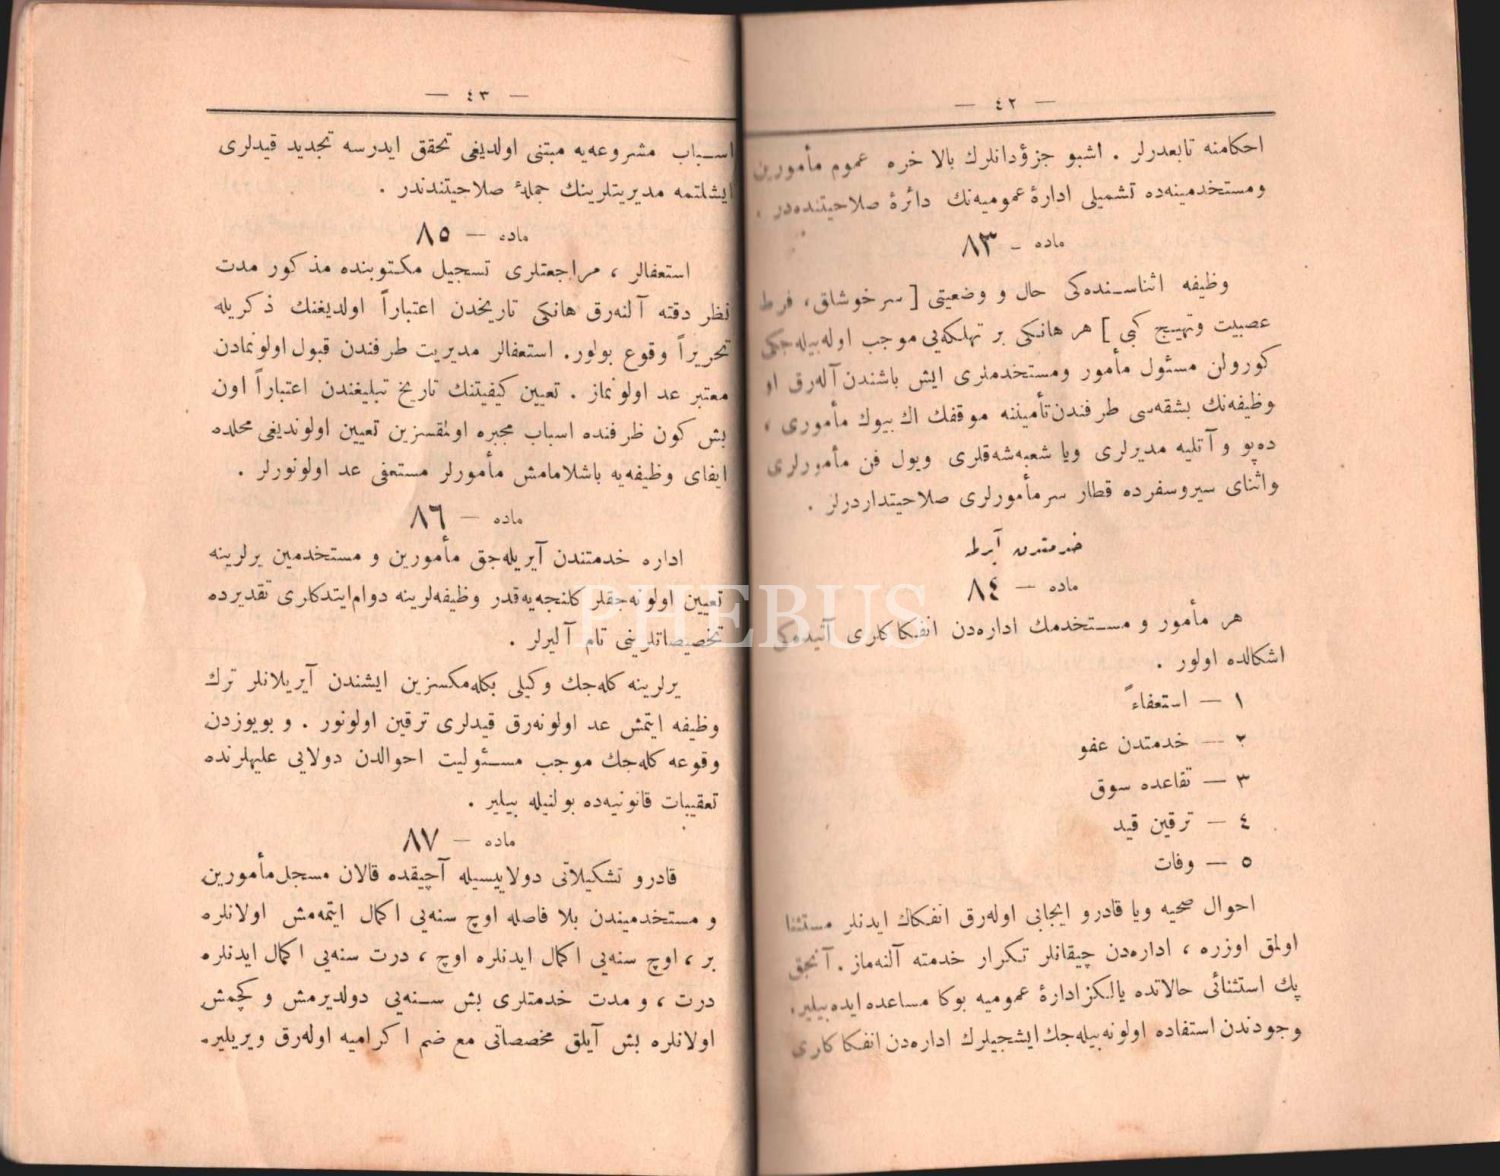 — ٤٢ —
احكامنه تابعدرلر . اشبو جزؤدانلرك بالا خره عموم مأمورين
ومستخدمينه‌ده تشميلى ادارهٔ عموميه‌نك دائرهٔ صلاحيتنده‌در .
ماده — ٨٣
وظيفه اثناسنده‌كى حال و وضعيتى [ سرخوشلق، فرط
عصبيت وتهييج كبى ] هر هانكى بر تهلكه‌يى موجب اوله‌بيله‌جكى
كورولن مسئول مأمور ومستخدملرى ايش باشندن آله‌رق او
وظيفه‌نك بشقه‌سى طرفندن تأميننه موقفك اك بيوك مأمورى ،
ده‌پو و آتليه مديرلرى ويا شعبه‌شه‌فلرى ويول فن مأمورلرى
واثناى سيروسفرده قطار سرمأمورلرى صلاحيتداردرلر .
خدمتدن آيرلمه
ماده — ٨٤
هر مأمور و مستخدمك اداره‌دن انفكاكلرى آتيده‌كى
اشكالده اولور .
١ — استعفاءً
٢ — خدمتدن عفو
٣ — تقاعده سوق
٤ — ترقين قيد
٥ — وفات
احوال صحيه ويا قادرو ايجابى اوله‌رق انفكاك ايدنلر مستثنا
اولمق اوزره ، اداره‌دن چيقانلر تكرار خدمته آلنه‌ماز . آنجق
پك استثنائى حالاتده يالكز ادارهٔ عموميه بوكا مساعده ايده‌بيلير.
وجودندن استفاده اولونه‌بيله‌جك ايشجيلرك اداره‌دن انفكاكلرى
— ٤٣ —
اسباب مشروعه‌يه مبتنى اولديغى تحقق ايدرسه تجديد قيدلرى
ايشلتمه مديريتلرينك جملهٔ صلاحيتندندر .
ماده — ٨٥
استعفالر ، مراجعتلرى تسجيل مكتوبنده مذكور مدت
نظر دقته آلنه‌رق هانكى تاريخدن اعتباراً اولديغنك ذكريله
تحريراً وقوع بولور. استعفالر مديريت طرفندن قبول اولونمادن
معتبر عد اولونماز . تعيين كيفيتنك تاريخ تبليغندن اعتباراً اون
بش كون ظرفنده اسباب مجبره اولمقسزين تعيين اولونديغى محلده
ايفاى وظيفه‌يه باشلامامش مأمورلر مستعفى عد اولونورلر .
ماده — ٨٦
اداره خدمتندن آيريله‌جق مأمورين و مستخدمين يرلرينه
تعيين اولونه‌جقلر كلنجه‌يه‌قدر وظيفه‌لرينه دوام‌ايتدكلرى تقديرده
تخصيصاتلرينى تام آليرلر .
يرلرينه كله‌جك وكيلى بكله‌مكسزين ايشندن آيريلانلر ترك
وظيفه ايتمش عد اولونه‌رق قيدلرى ترقين اولونور . و بويوزدن
وقوعه كله‌جك موجب مسئوليت احوالدن دولايى عليهلرنده
تعقيبات قانونيه‌ده بولنيله بيلير .
ماده — ٨٧
قادرو تشكيلاتى دولاييسيله آچيقده قالان مسجل‌مأمورين
و مستخدميندن بلا فاصله اوچ سنه‌يى اكمال ايتمه‌مش اولانلره
بر ، اوچ سنه‌يى اكمال ايدنلره اوچ ، درت سنه‌يى اكمال ايدنلره
درت ، و مدت خدمتلرى بش سنه‌يى دولديرمش و كچمش
اولانلره بش آيلق مخصصاتى مع ضم اكراميه اوله‌رق ويريلير.
PHEBUS